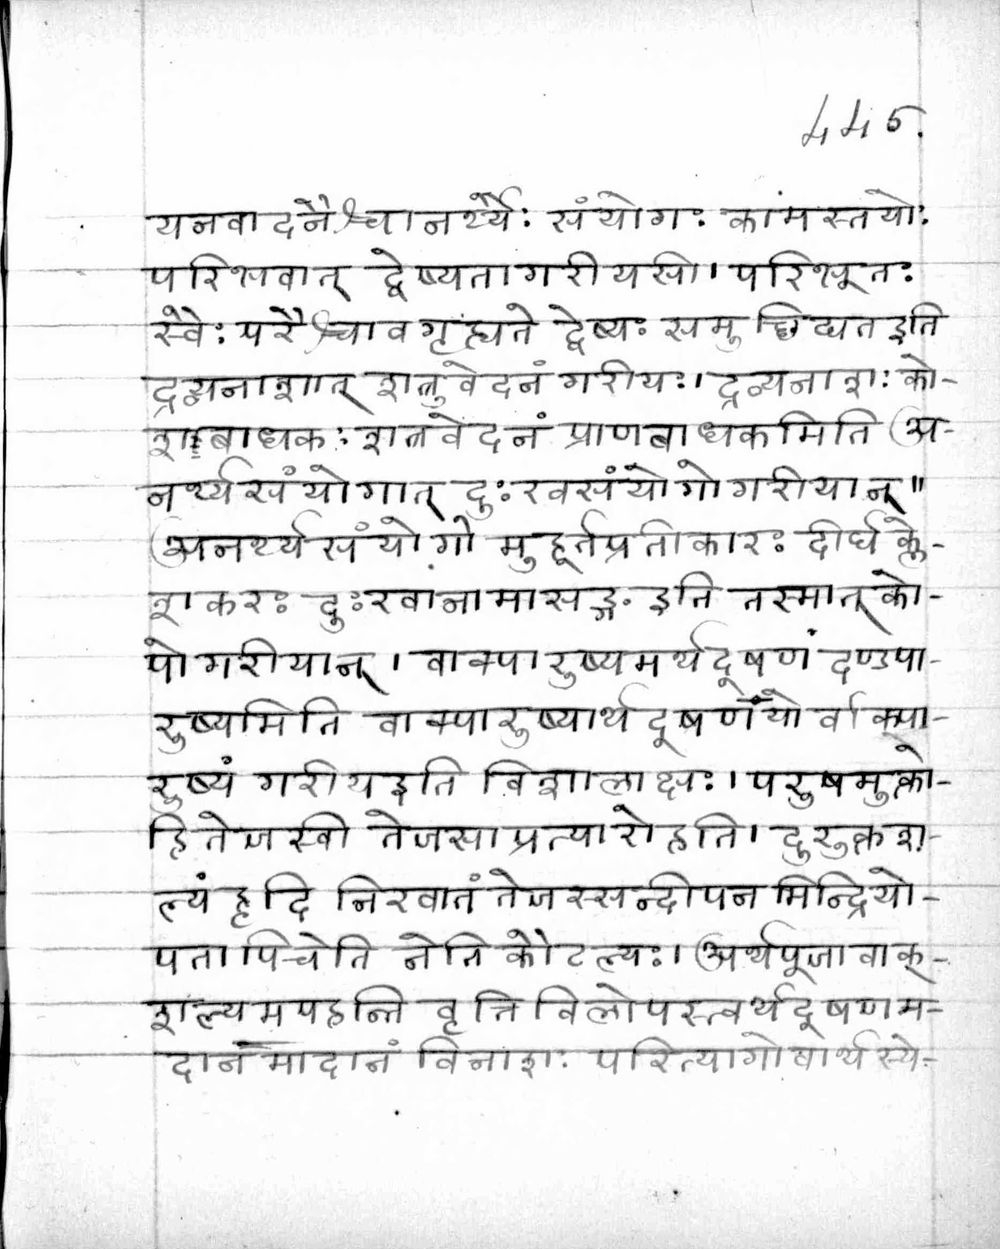 445.
यनवादनैश्चानर्थ्यैः संयोगः कामस्तयोः
परिभवात् द्वेष्यतागरीयसी। परिभूतः
स्वैः परैश्चावगृह्यते द्वेष्यः समुच्छिद्यत इति
द्रव्यनाशात् शत्रुवेदनं गरीयः। द्रव्यनाशः को-
शबाधकः शत्रवेदनं प्राणबाधकमिति अ-
नर्थ्यसंयोगात् दुःखसंयोगो गरीयान्॥
अनर्थ्यसंयोगो मुहूर्तप्रतीकारः दीर्घक्ले-
शकरः दुःखानामासङ्ग इति तस्मात् को-
पो गरीयान्। वाक्पारुष्यमर्थदूषणं दण्डपा-
रुष्यमिति वाक्पारुष्यार्थदूषणयोर्वाक्पा-
रुष्यं गरीय इति विशालाक्षः। परुषमुक्तो-
हि तेजस्वी तेजसा प्रत्यारोहति। दुरुक्तश-
ल्यं हृदि निखातं तेजस्सन्दीपनमिन्द्रियो-
पतापिचेति नेति कौटल्यः। अर्थपूजा वाक्-
शल्यमपहन्ति वृत्तिविलोपस्त्वर्थदूषणम-
दानमादानं विनाशः परित्यागोवार्थस्ये-